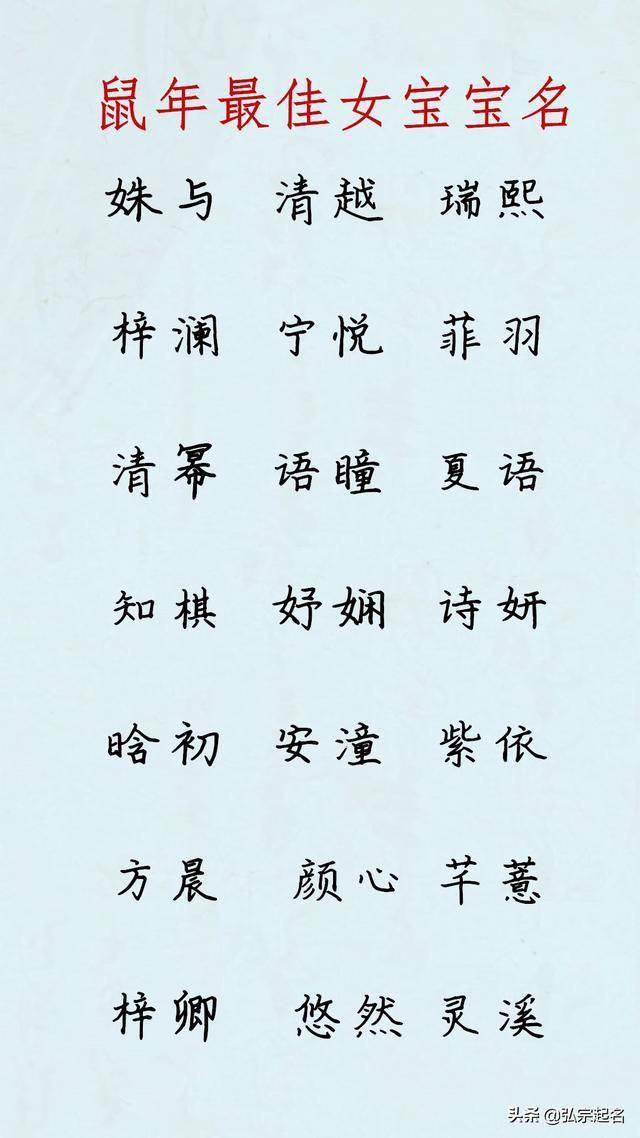 鼠年最佳女宝宝名
姝与 清越 瑞熙
梓澜 宁悦 菲羽
清幂 语瞳 夏语
知棋 妤娴 诗妍
晗初 安潼 紫依
方晨 颜心 芊薏
梓卿 悠然 灵溪
头条 @弘宗起名